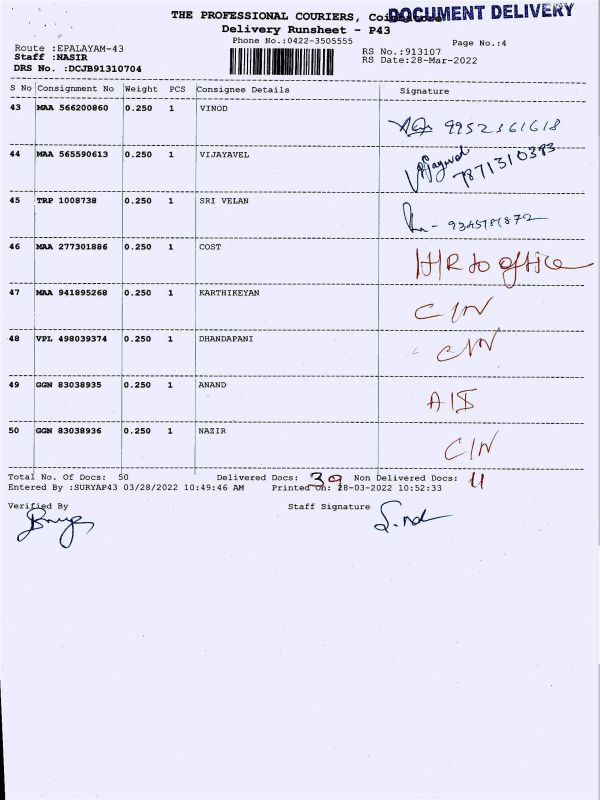 THE PROFESSIONAL COURIERS, Coimbatore
DOCUMENT DELIVERY
Delivery Runsheet - P43
Phone No.:0422-3505555
Page No.:4
Route :EPALAYAM-43
Staff :NASIR
DRS No. :DCJB91310704
RS No.:913107
RS Date:28-Mar-2022
S No Consignment No Weight PCS Consignee Details Signature
43 MAA 566200860 0.250 1 VINOD
9952361618
44 MAA 565590613 0.250 1 VIJAYAVEL
7871310383
45 TRP 1008738 0.250 1 SRI VELAN
46 MAA 277301886 0.250 1 COST
H/R to office
47 MAA 941895268 0.250 1 KARTHIKEYAN
C/N
48 VPL 498039374 0.250 1 DHANDAPANI
C/N
49 GGN 83038935 0.250 1 ANAND
50 GGN 83038936 0.250 1 NAZIR
C/N
Total No. Of Docs: 50 Delivered Docs: 39 Non Delivered Docs: 11
Entered By :SURYAP43 03/28/2022 10:49:46 AM Printed On: 28-03-2022 10:52:33
Verified By Staff Signature